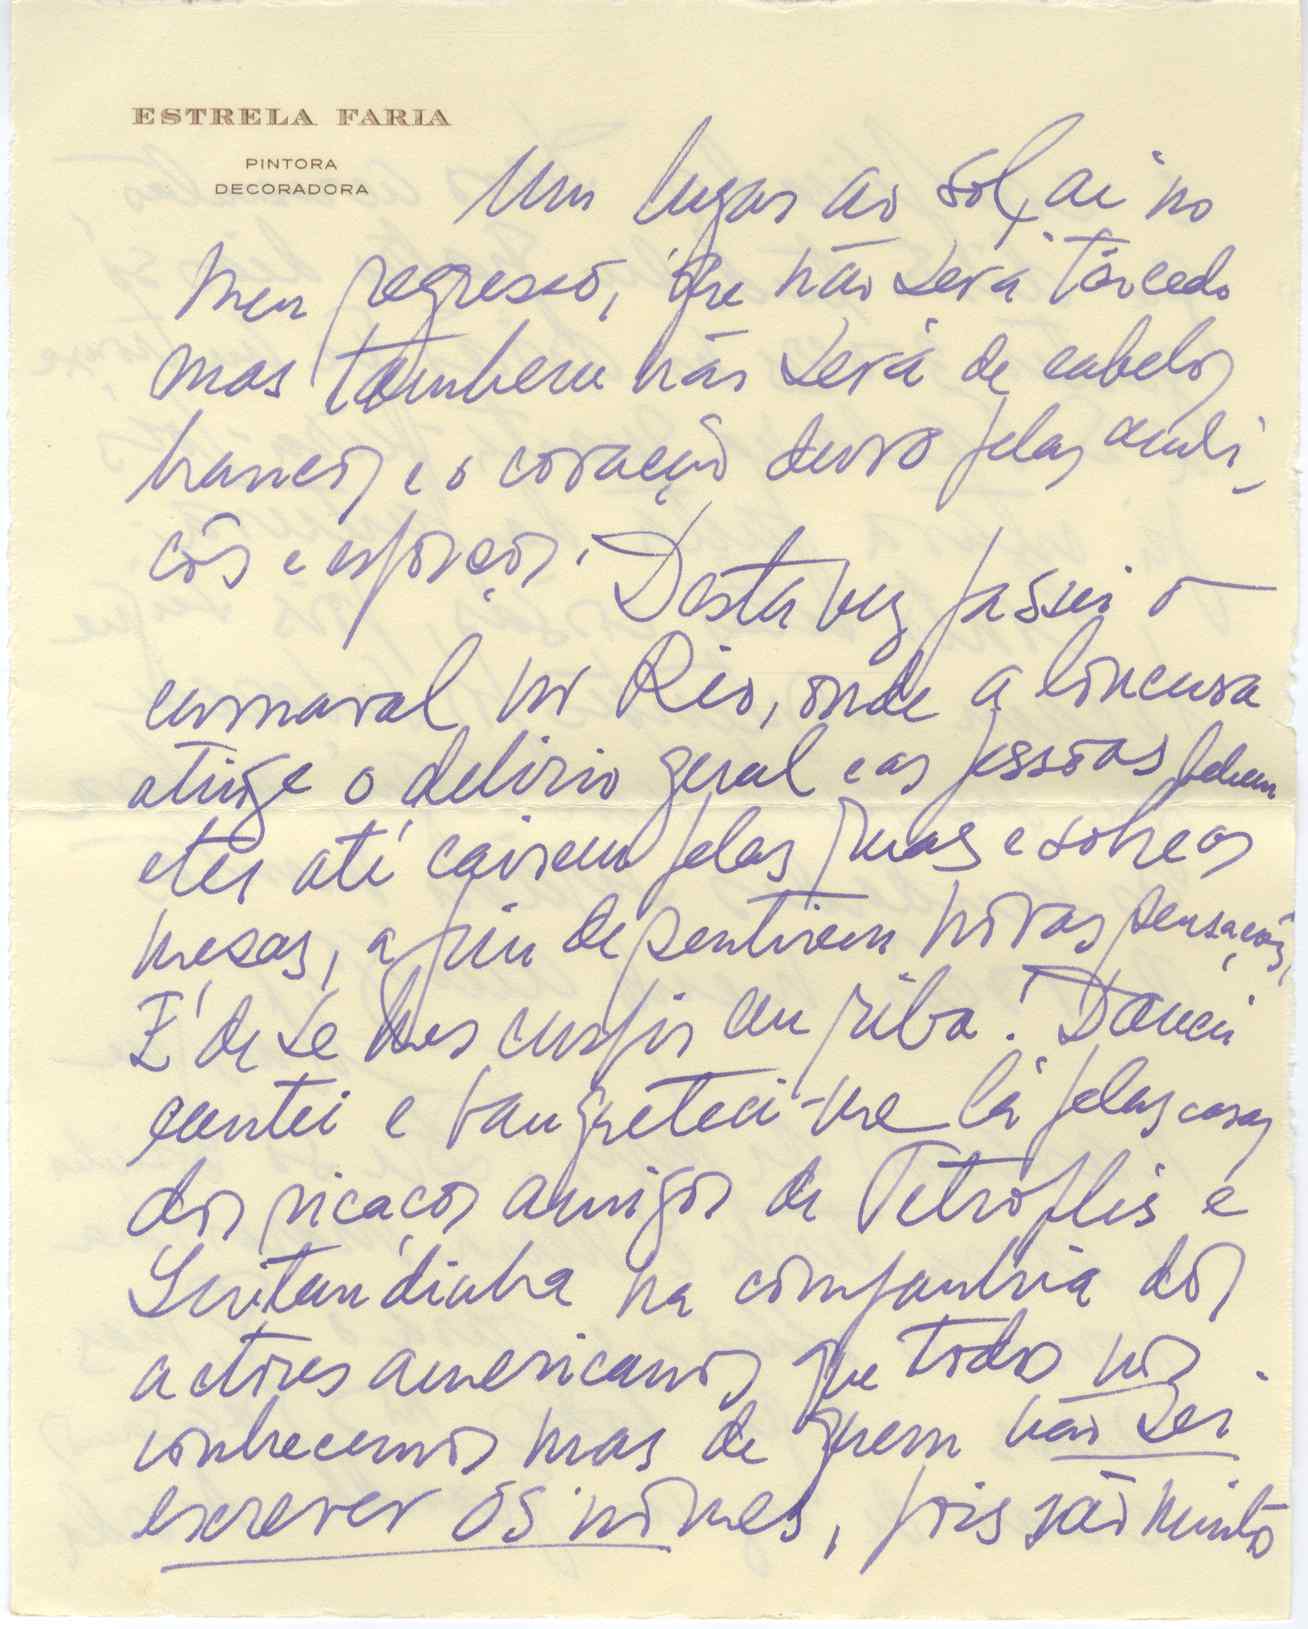 ESTRELA FARIA
PINTORA
DECORADORA
Um lugar ao sol, ai no
meu regresso, que não será tão cedo
mas tambem não será de cabelos
brancos e o coração duro pelas
e esforços. Desta vez passei o
carnaval no Rio, onde a loucura
atinge o delirio geral e as pessoas bebem
eter até cairem pelas ruas e sobre as
mesas, a fim de sentirem novas sensações.
É de se lhes cuspir em riba! Dancei
cantei e banqueteei-me lá pelas casas
dos ricaços amigos de Petroplis e
Quitandinha na companhia dos
actores americanos que todos nós
conhecemos mas de quem não sei
escrever os nomes, pois são muito